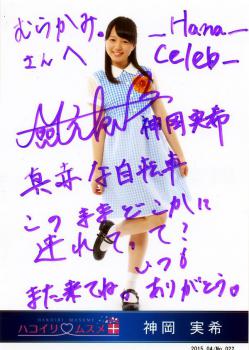 むらかみ。
さんへ
_Hana_
Celeb_
神岡実希
真赤な自転車
このままどこかに
連れてって?
いつも
また来てね。ありがとう。
HAKOIRI MUSUME
ハコイリ♡ムスメ
神岡 実希
2015.04/No.022